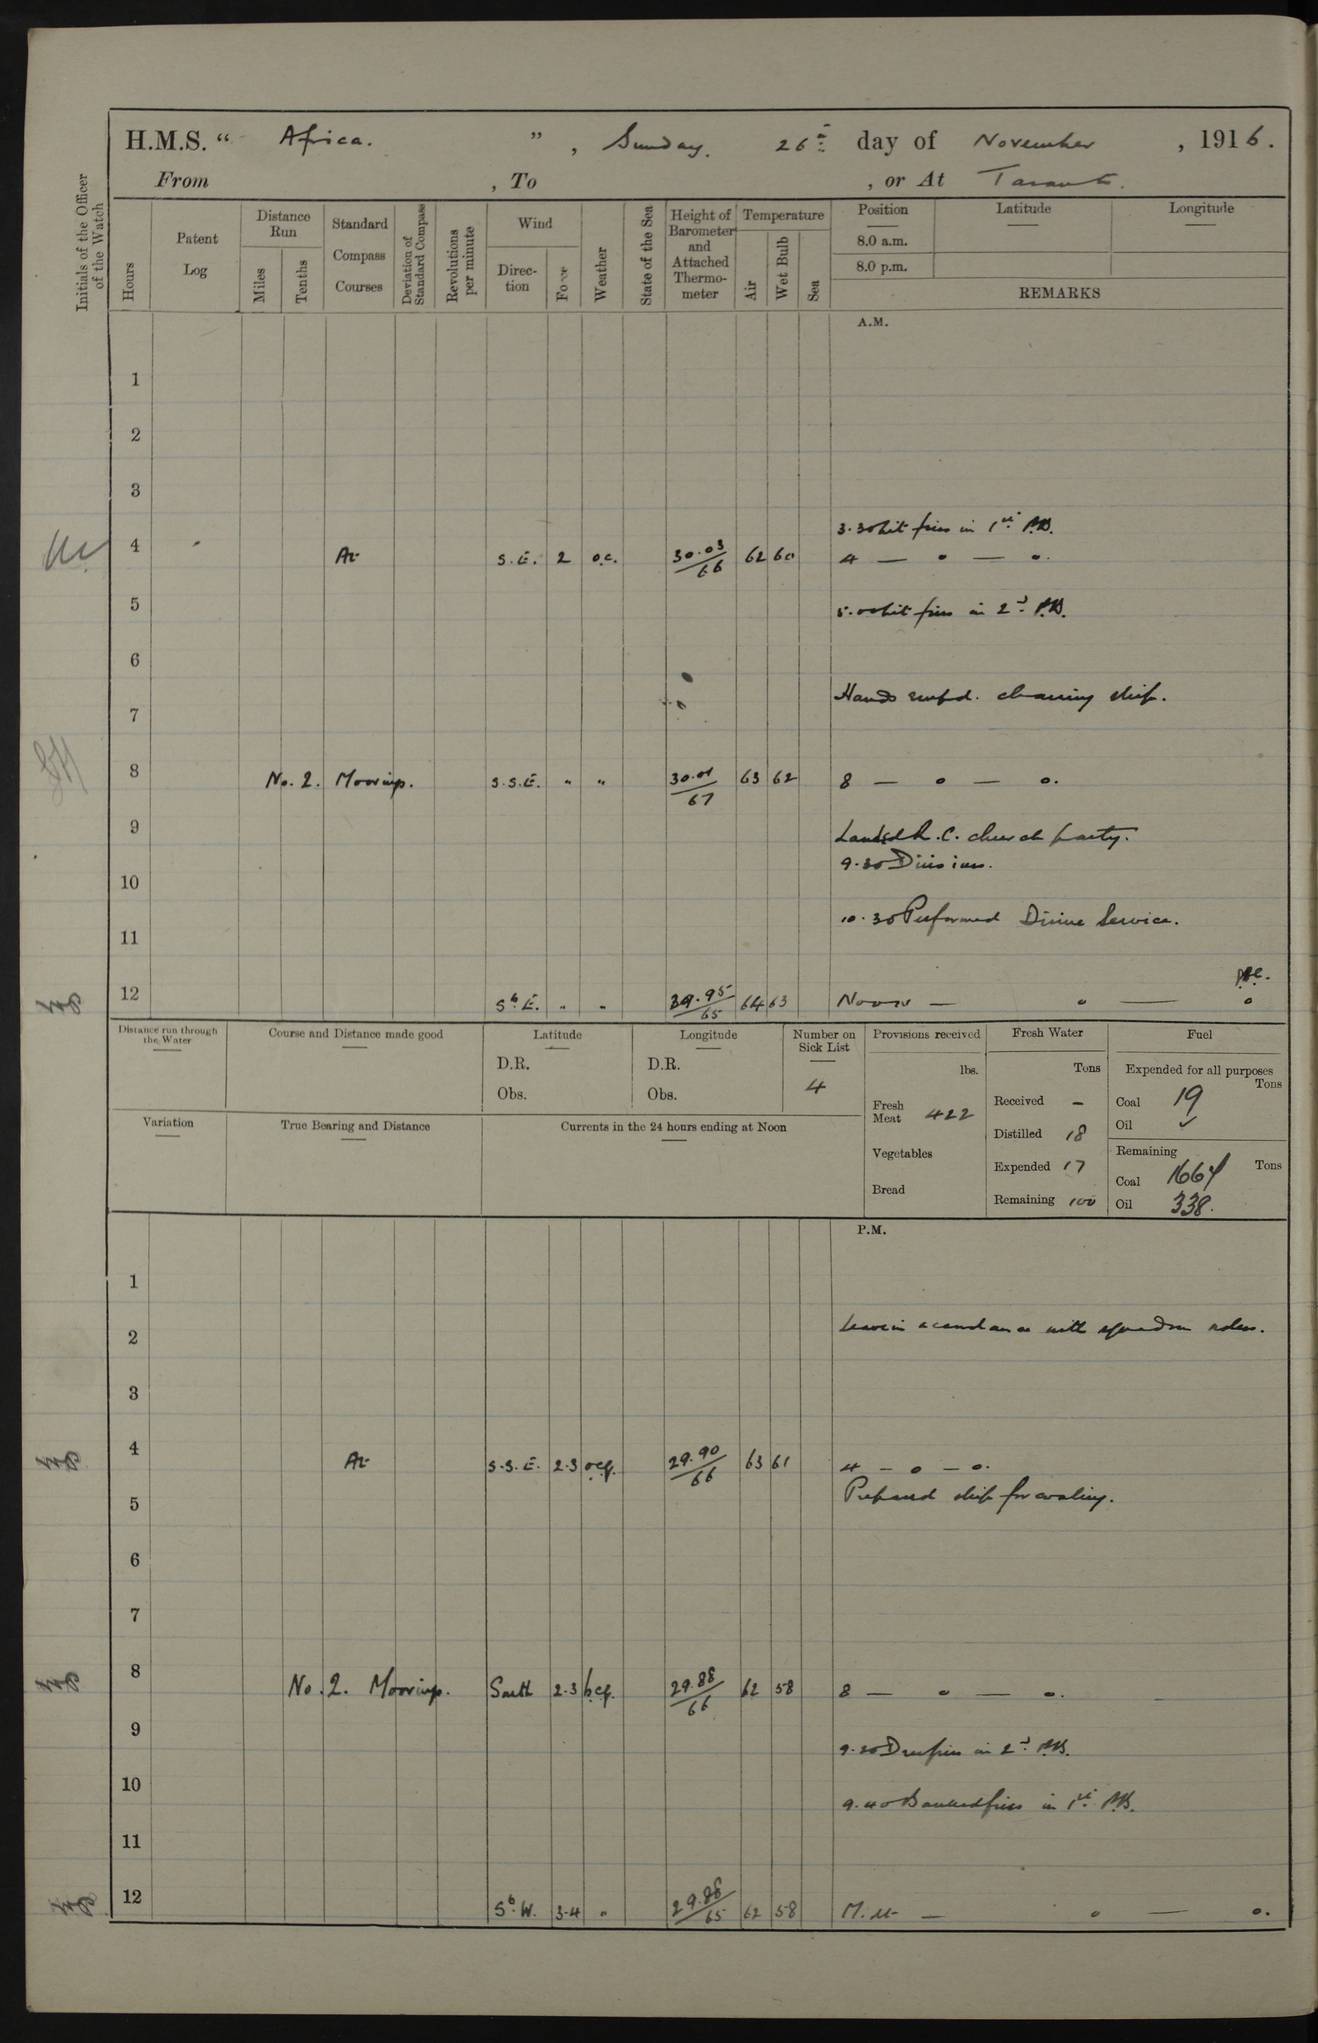 H.M.S. “ Africa. ” , Sunday. 26th day of November , 1916.
From , To , or At Taranto.
Initials of the Officer of the Watch
Hours
Patent Log
Distance Run
Miles
Tenths
Standard Compass Courses
Deviation of Standard Compass
Revolutions per minute
Wind
Direction
Force
Weather
State of the Sea
Height of Barometer and Attached Thermometer
Temperature
Air
Wet Bulb
Sea
Position
8.0 a.m.
8.0 p.m.
Latitude
Longitude
REMARKS
A.M.
1
2
3
3.30 Lit fires in 1st P.B.
4 At S.E. 2 o.c. 30.03/66 62 60 4 — o — o.
5 5.00 Lit fires in 2nd P.B.
6
Hands empd. cleaning ship.
7
8 No. 2. Moorings. S.S.E. " " 30.01/67 63 62 8 — o — o.
9 Landed R.C. church party.
9.30 Divisions.
10
10.30 Performed Divine Service.
11
12 S by E. " " 29.95/65 64 63 Noon — o — o
Distance run through the Water
Course and Distance made good
Latitude
D.R.
Obs.
Longitude
D.R.
Obs.
Number on Sick List
4
Provisions received
lbs.
Fresh Meat 422
Vegetables
Bread
Fresh Water
Tons
Received —
Distilled 18
Expended 17
Remaining 100
Fuel
Expended for all purposes
Tons
Coal 19
Oil ✓
Remaining
Tons
Coal 1664
Oil 338.
Variation
True Bearing and Distance
Currents in the 24 hours ending at Noon
P.M.
1
2 Leave in accordance with squadron orders.
3
4 At S.S.E. 2-3 ocq. 29.90/66 63 61 4 — o — o.
5 Prepared ship for coaling.
6
7
8 No. 2. Moorings. South 2-3 bcq. 29.88/66 62 58 8 — o — o.
9 9.20 Drew fires in 2nd P.B.
10 9.40 Banked fires in 1st P.B.
11
12 S by W. 3-4 " 29.88/65 62 58 M.Nt — o — o.